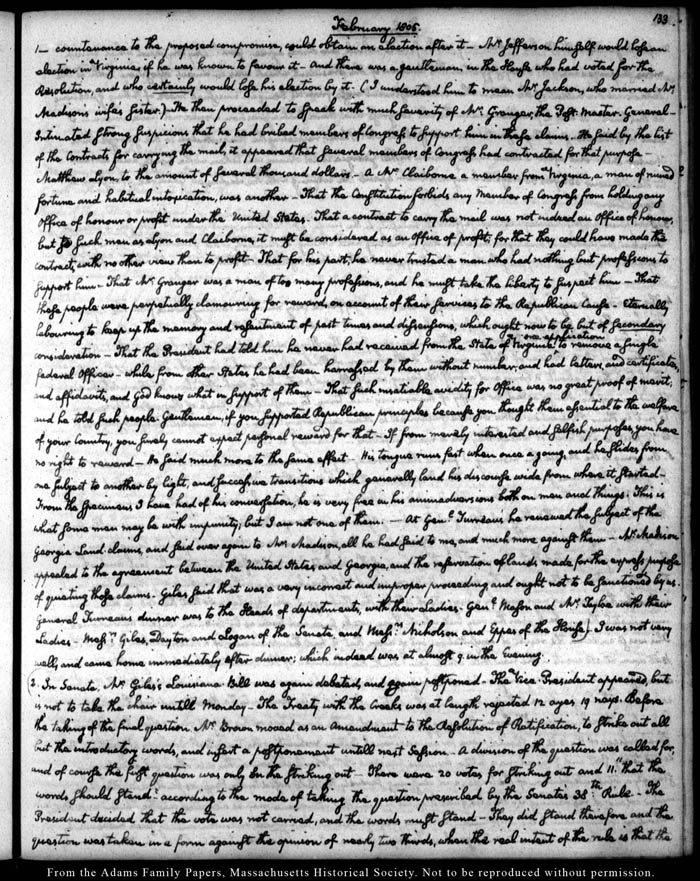 133
February 1805.
1— countenance to the proposed compromise, could obtain an election after it — Mr. Jefferson himself would lose an
election in Virginia, if he was known to favour it — And there was a gentleman in the House who had voted for the
Resolution, and who certainly would lose his election by it. (I understood him to mean Mr. Jackson, who married Mrs.
Madison's sister.) He then proceeded to speak with much severity of Mr. Granger, the Post-Master-General —
Intimated strong suspicions that he had bribed members of Congress to support him in these claims. He said by the list
of the Contracts for carrying the mail, it appeared that several members of Congress had contracted for that purpose —
Matthew Lyon, to the amount of several thousand dollars — A Mr. Claiborne a member from Virginia, a man of ruined
fortune and habitual intoxication, was another — That the Constitution forbids any Member of Congress from holding any
Office of honour or profit under the United States. That a contract to carry the mail was not indeed an Office of honour,
but to such men as Lyon and Claiborne, it must be considered as an Office of profit; for that they could have made the
contract, with no other view than to profit — That for his part, he never trusted a man who had nothing but professions to
support him — That Mr. Granger was a man of too many professions, and he must take the liberty to suspect him — That
these people were perpetually clamouring for reward, on account of their services to the Republican Cause — Eternally
labouring to keep up the memory and resentment of past times and dissensions, which ought now to be but of secondary
consideration — That the President had told him he never had received from the State of Virginia one application to remove a single
federal Officer — while from other States he had been harrassed by them without number, and had letters, and certificates,
and affidavits, and God knows what in support of them — That such insatiable avidity for Office was no great proof of merit;
and he told such people. Gentlemen, if you supported Republican principles because you thought them essential to the welfare
of your Country, you surely cannot expect personal reward for that — If from merely interested and selfish purposes, you have
no right to reward — He said much more to the same effect — His tongue runs fast when once a going, and he slides from
one subject to another by light, and successive transitions which generally land his discourse wide from where it started —
From the specimens I have had of his conversation, he is very free in his animadversions both on men and things. This is
what some men may be with impunity; but I am not one of them. — At Genl. Turreau's he renewed the subject of the
Georgia Land claims, and said over again to Mr. Madison, all he had said to me, and much more against them — Mr. Madison
appealed to the agreement between the United States and Georgia, and the reservation of lands made for the express purpose
of quieting those claims. Giles said that was a very incorrect and improper proceeding and ought not to be sanctioned by us.
General Turreau's dinner was to the Heads of departments, with their Ladies. Genl. Mason and Mr. Tayloe with their
Ladies — Messrs. Giles, Dayton and Logan of the Senate, and Messrs. Nicholson and Eppes of the House. I was not very
well, and came home immediately after dinner; which indeed was at almost 9. in the Evening.
2. In Senate, Mr. Giles's Louisiana Bill was again debated, and again postponed — The Vice-President appeared, but
is not to take the chair untill Monday — The Treaty with the Creeks was at length rejected 12 ayes 19 nays. Before
the taking of the final question Mr. Brown moved as an Amendment to the Resolution of Ratification, to strike out all
but the introductory words, and insert a postponement untill next Session — A division of the question was called for,
and of course the first question was only on the striking out — There were 20 votes for striking out and 11. "that the
words should stand" according to the mode of taking the question prescribed by the Senate's 38th. Rule. — The
President decided that the vote was not carried, and the words must stand — They did stand therefore and the
question was taken in a form against the opinion of nearly two thirds, when the real intent of the rule is that the
From the Adams Family Papers, Massachusetts Historical Society. Not to be reproduced without permission.